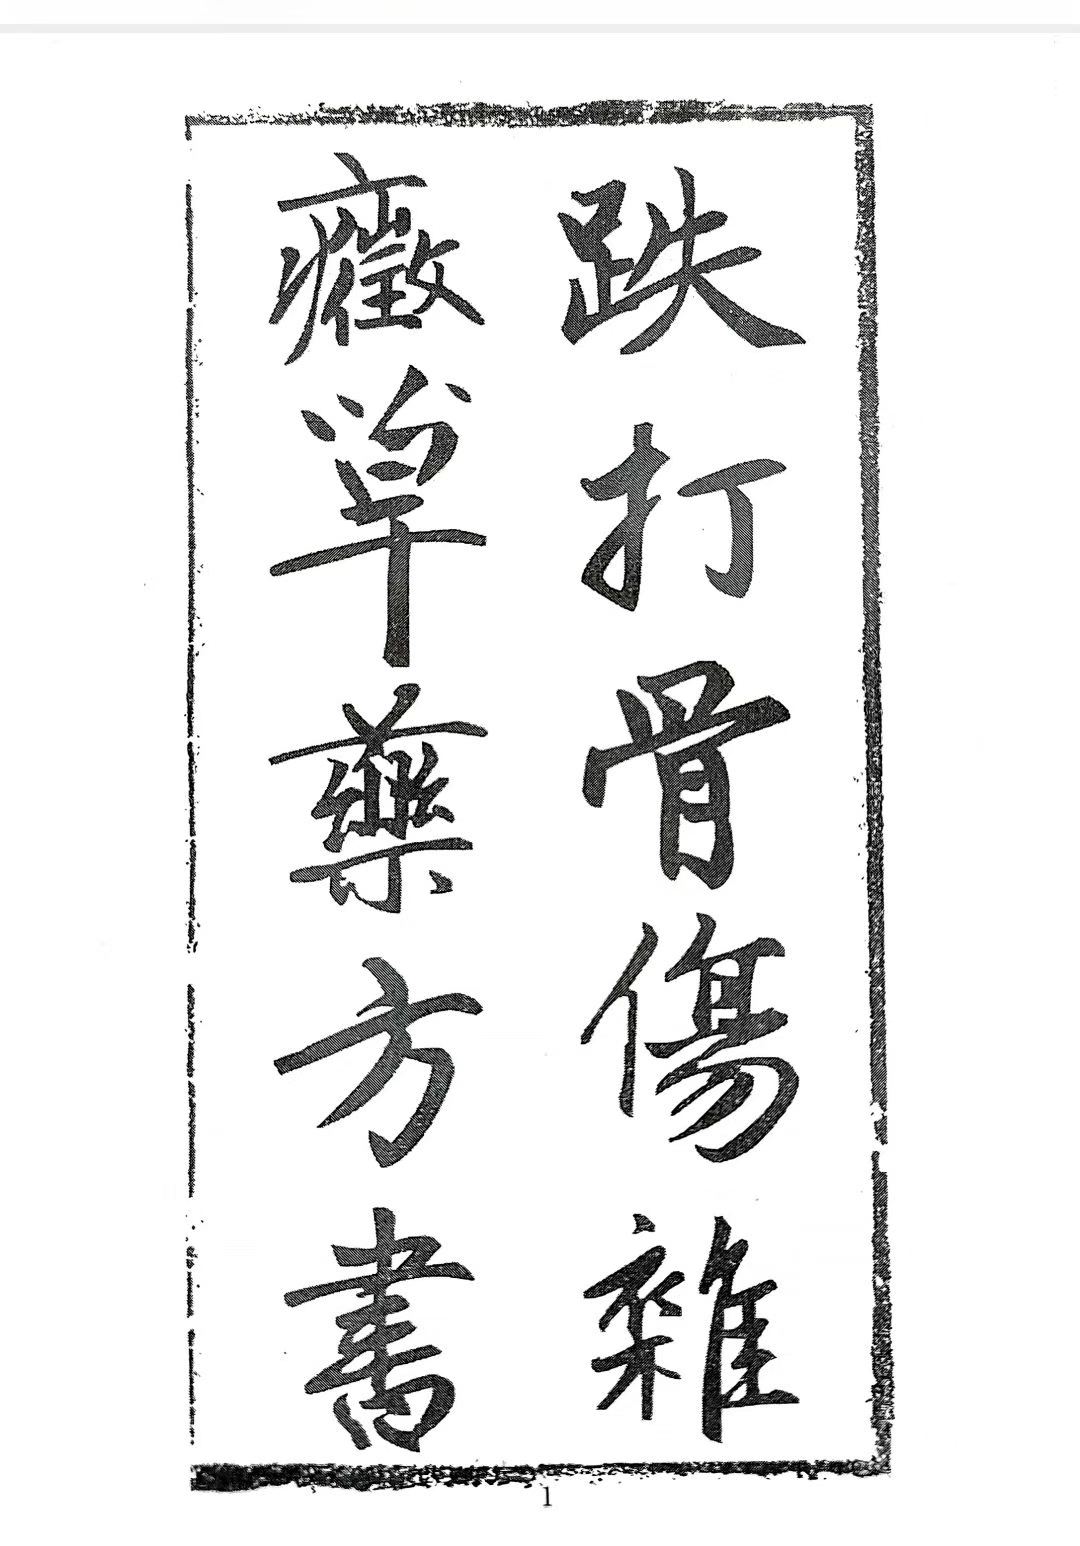 跌打骨傷雜
癥草藥方書
1